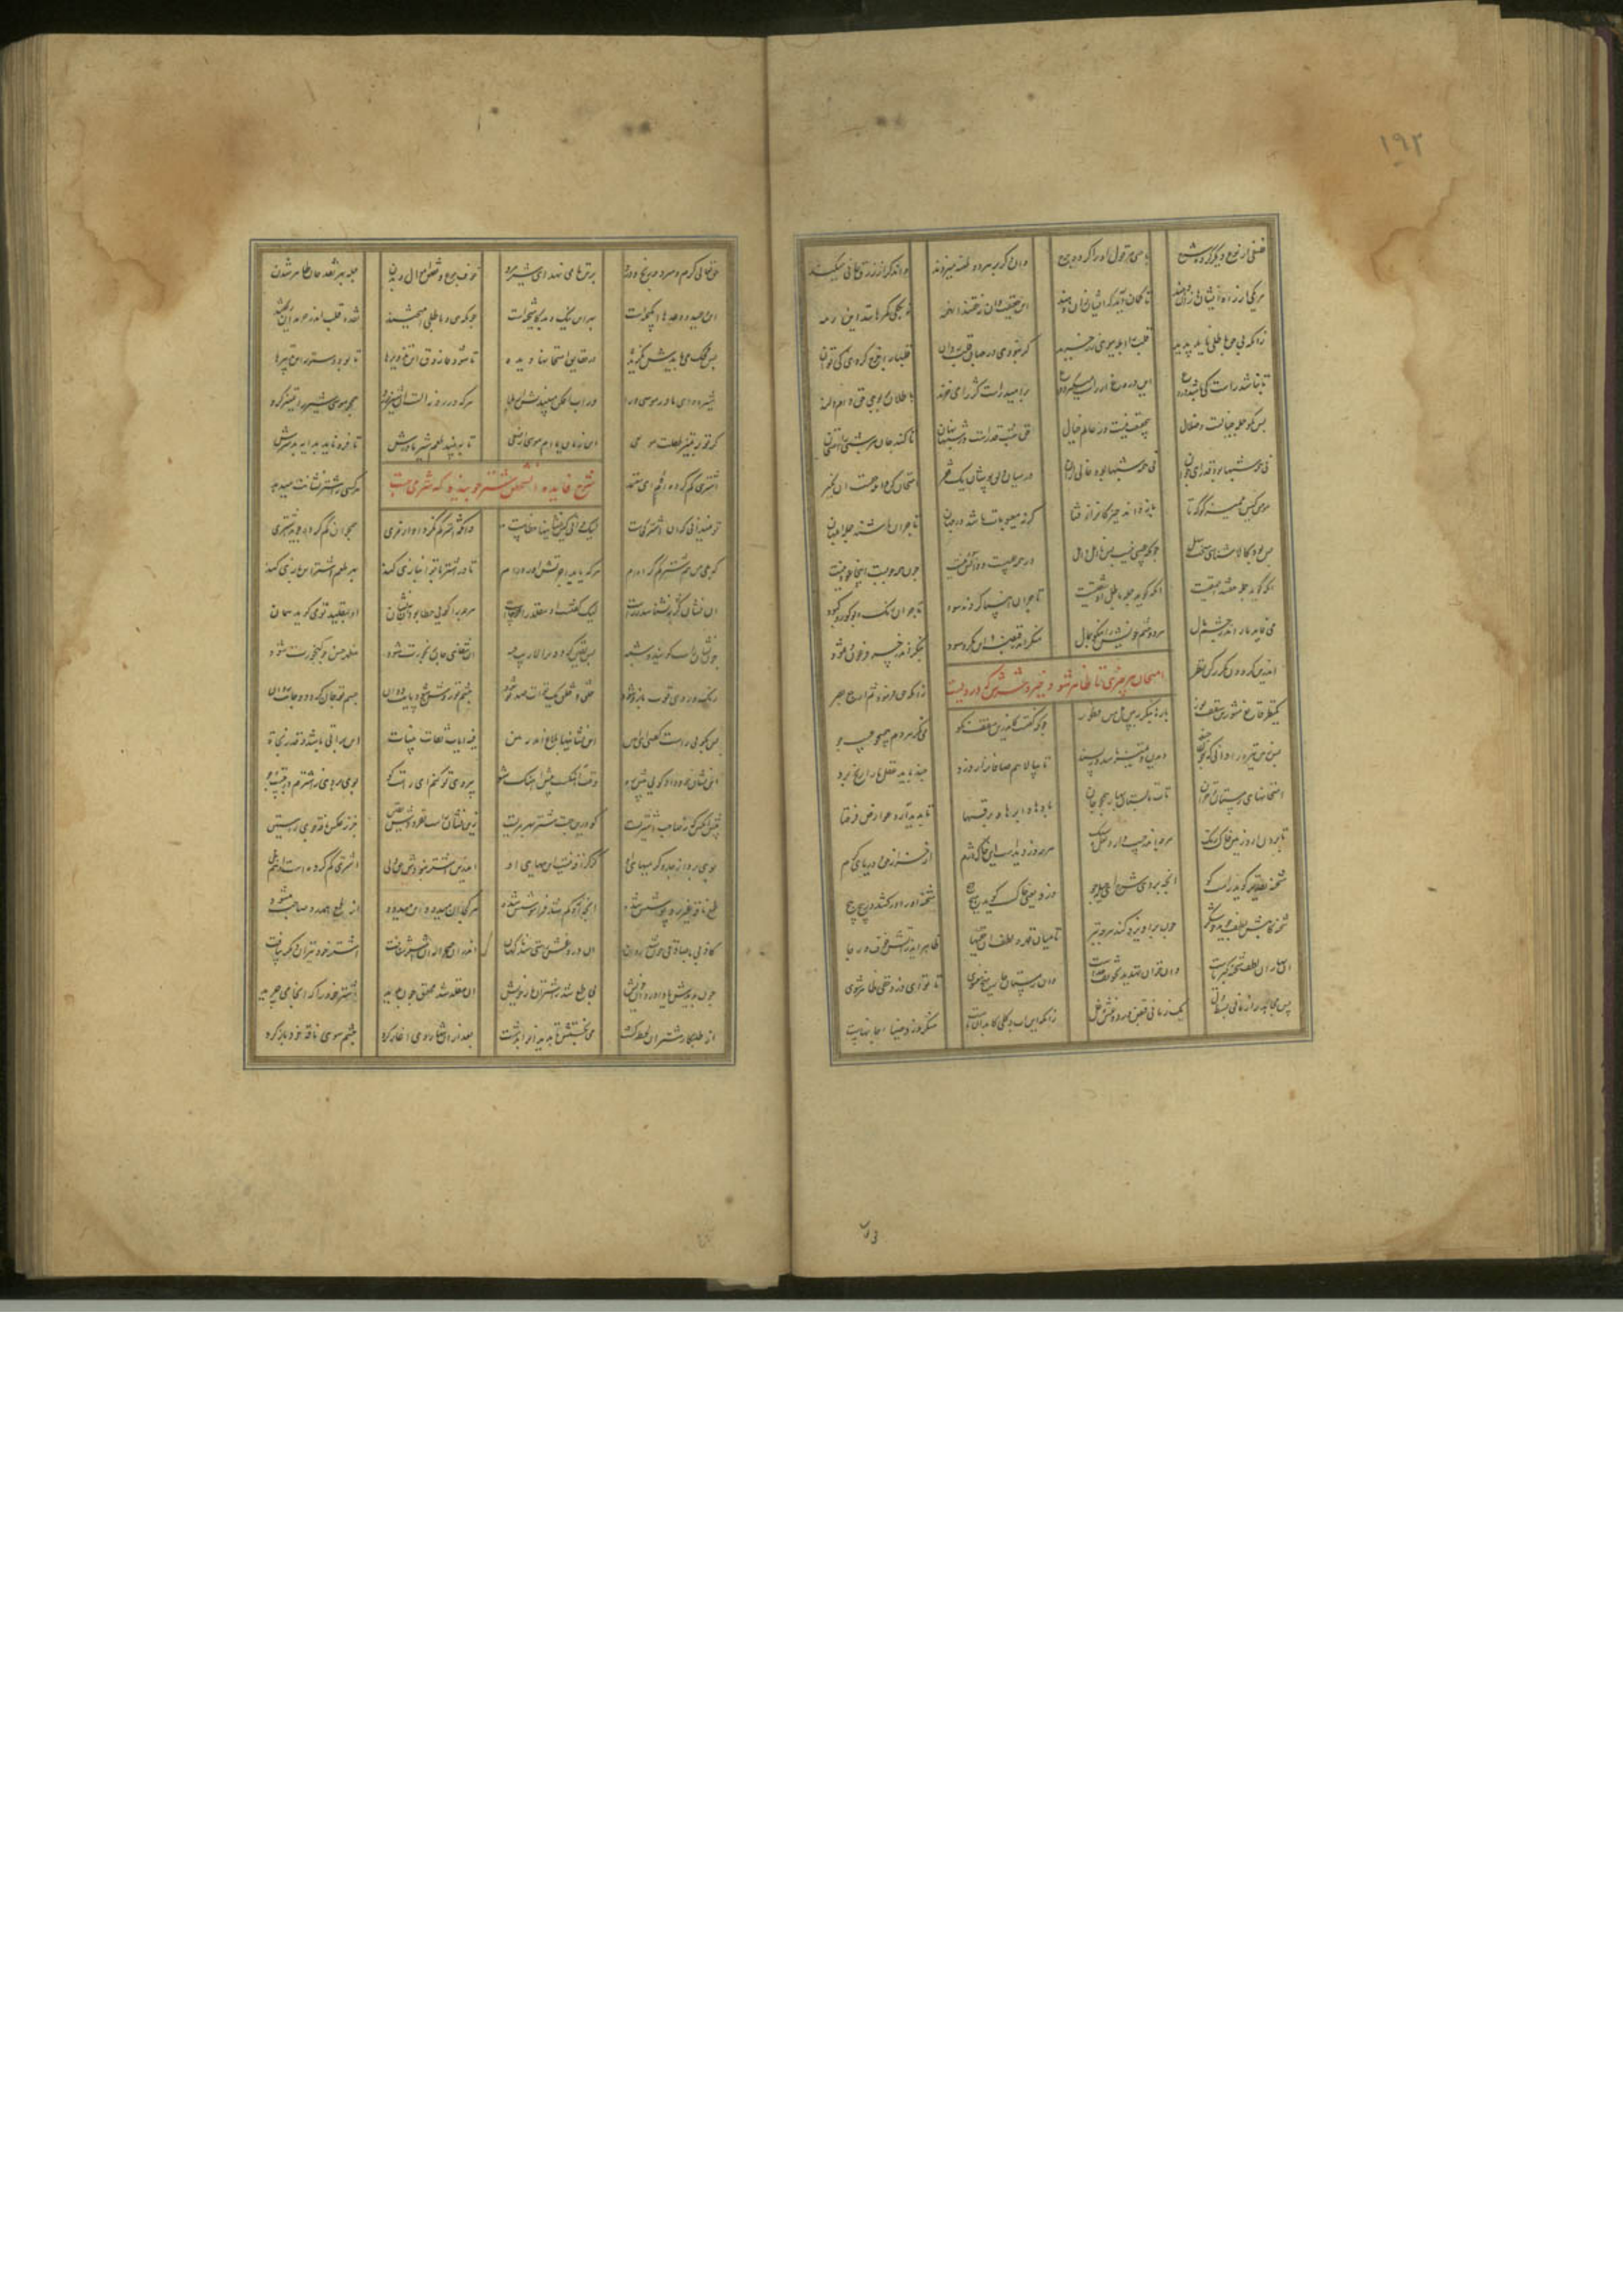 ۱۹۲
فلسفی از نوع دیگر کرده شرح باحثی مر قول او را کرده جرح وان دگر بر هر دو طعنه میزند وان دگر از زرق جانی میکند
هر یک از ره این نشانها زان دهند تا گمان آید که ایشان زان دهند این حقیقت دان نه حقند این همه نه بکلی گمرهانند این رمه
زانکه بی حق باطلی ناید پدید قلب را ابله ببوی زر خرید گر نبودی در جهان نقدی روان قلبها را خرج کردن کی توان
تا نباشد راست کی باشد دروغ این دروغ از راست میگیرد فروغ بر امید راست کژ را می خرند
پس مگو جمله خیالست و ضلال بی حقیقت نیست در عالم خیال حق شب قدرست در شبها نهان تا کند جان هر شبی را امتحان
نی همه شبها بود قدر ای جوان نی همه شبها بود خالی از ان در میان دلق پوشان یک فقیر امتحان کن وانکه حقست ان بگیر
مومن کیس ممیز کو که تا باز داند حیزکان را از فتا گرنه معیوبات باشد در جهان تاجران باشند جمله ابلهان
پس بود کالا شناسی سخت سهل چونکه عیبی نیست چه نااهل و اهل ور همه عیبست دانش سود نیست چون همه چوبست اینجا عود نیست
انکه گوید جمله حقند احمقیست وانکه گوید جمله باطل او شقیست تاجران انبیا کردند سود تاجران رنگ و بو کور و کبود
می نماید مار اندر چشم مال هر دو چشم خویش را نیکو بمال منگر اندر غبطه این بیع و سود بنگر اندر خسر فرعون و ثمود
اندرین گردون مکرر کن نظر امتحان هر چیزی تا ظاهر شود خیر و شری که در ویست زانکه حق فرمود ثم ارجع بصر
یک نظر قانع مشو زین سقف نور بارها بنگر ببین هل من فطور چونکه گفتت کاندرین سقف نکو
پس زمین تیره را دانی که چند دیدن و تمییز باید در پسند تا بپالاییم صافان را ز درد چند باید عقل ما را رنج برد
امتحانهای زمستان و خزان تاب تابستان بهار همچو جان بادها و ابرها و برقها تا پدید آرد عوارض فرقها
تا برون ارد زمین خاک رنگ هرچه اندر جیب دارد لعل و سنگ هرچه دزدیدست این خاک دژم از خزانه حق و دریای کرم
شحنه تقدیر گوید راست گو انچه بردی شرح واده مو بمو دزد یعنی خاک گوید هیچ هیچ شحنه او را در کشد در پیچ پیچ
شحنه گاهش لطف گوید چون شکر تا میان قهر و لطف ان خفیها ظاهر اید ز اتش خوف و رجا
ان بهاران لطف شحنه کبریاست وان زمستان چارمیخ معنوی تا تو ای دزد خفی ظاهر شوی
پس مجاهد را زمانی بسط دل یک زمانی قبض و درد و غش و غل زانکه این اب و گلی کابدان ماست منکر و دزد ضیاء جانهاست
حق تعالی گرم و سرد و رنج و درد بر تن ما می نهد ای شیر مرد خوف و جوع و نقص اموال و بدن جمله بهر نقد جان ظاهر شدن
این وعید و وعدها انگیختست بهر این نیک و بدی کامیختست چونکه حق و باطلی امیختند نقد و قلب اندر حرمدان ریختند
پس محک می بایدش بگزیده در حقایق امتحانها دیده تا شود فاروق این تزویرها تا بود دستور این تدبیرها
شیر ده ای مادر موسی ورا واندر اب افکن میندیش از بلا هر که در روز الست ان شیر خورد همچو موسی شیر را تمییز کرد
گر تو بر تمییز طفلت مولعی این زمان یا ام موسی ارضعی تا ببیند طعم شیر مادرش تا فرو ناید بدایه بد سرش
اشتری گم کرده ای معتمد شرح فایده شخص شتر جوینده هر کسی ز اشتر نشانت میدهد
تو نمیدانی که ان اشتر کجاست لیک دانی کین نشانیها خطاست وانکه اشتر گم نکرد او از مری همچو ان گم کرده جوید اشتری
که بلی من هم شتر گم کرده ام هر که یابد اجرتش اورده ام تا در اشتر با تو انبازی کند بهر طمع اشتر این بازی کند
ان نشان کژ بنشناسد ز راست هر چه را گویی خطا بود ان نشان او بتقلید تو میگوید همان
چون نشان راست گویند و شبیه پس یقین گردد ترا لا ریب فیه ان شفای جان رنجورت شود
رنگ و روی و قوت بازو شود خلق و خلق یک توت صد تو شود چشم تو روشن شود پایت دوان جسم تو جان گردد و جانت روان
پس بگویی راست گفتی ای امین این نشانیها بلاغ آمد مبین فیه ایات ثقات بینات این براتی باشد و قدر نجات
این نشان چون داد گویی پیش رو وقت آهنگست پیش اهنگ شو پیروی تو کنم ای راست گو بوی بردی ز اشترم
پیش انکس که نه صاحب اشتریست کو درین جست شتر بهر مریست زین نشان راست نفزودش یقین جز ز عکس ناقه جوی راستین
بوی برد از جد و گرمیهای او که گزافه نیست این هیهای او اندرین اشتر نبودش حق ولی اشتری گم کرده است او هم بلی
طمع ناقه غیر روپوشش شده انچه ازو گم شد فراموشش شده هر کجا او میدود این میدود از طمع همدرد صاحب میشود
کاذبی با صادقی چون شد روان ان دروغش راستی شد ناگهان اندر ان صحرا که ان اشتر شتافت اشتر خود نیز ان دیگر بیافت
چون بدیدش یاد اورد ان خویش بی طمع شد ز اشتران ان مقلد شد محقق چون بدید اشتر خود را که انجا می چرید
او طلبکار شتر ان لحظه گشت می نجستش تا ندید او را بدشت بعد از ان تنها روی اغاز کرد چشم سوی ناقه خود باز کرد